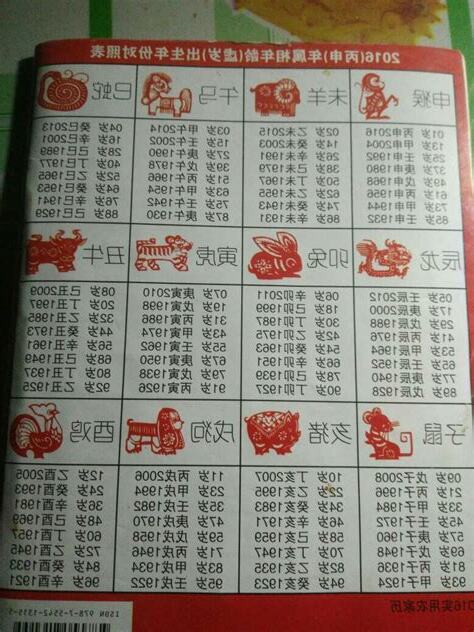 2016(丙申)年属相年龄(虚岁)出生年份对照表
申猴
01岁 丙申2016
13岁 甲申2004
25岁 壬申1992
37岁 庚申1980
49岁 戊申1968
61岁 丙申1956
73岁 甲申1944
85岁 壬申1932
未羊
02岁 乙未2015
14岁 癸未2003
26岁 辛未1991
38岁 己未1979
50岁 丁未1967
62岁 乙未1955
74岁 癸未1943
86岁 辛未1931
午马
03岁 甲午2014
15岁 壬午2002
27岁 庚午1990
39岁 戊午1978
51岁 丙午1966
63岁 甲午1954
75岁 壬午1942
87岁 庚午1930
巳蛇
04岁 癸巳2013
16岁 辛巳2001
28岁 己巳1989
40岁 丁巳1977
52岁 乙巳1965
64岁 癸巳1953
76岁 辛巳1941
88岁 己巳1929
辰龙
05岁 壬辰2012
17岁 庚辰2000
29岁 戊辰1988
41岁 丙辰1976
53岁 甲辰1964
65岁 壬辰1952
77岁 庚辰1940
89岁 戊辰1928
卯兔
06岁 辛卯2011
18岁 己卯1999
30岁 丁卯1987
42岁 乙卯1975
54岁 癸卯1963
66岁 辛卯1951
78岁 己卯1939
90岁 丁卯1927
寅虎
07岁 庚寅2010
19岁 戊寅1998
31岁 丙寅1986
43岁 甲寅1974
55岁 壬寅1962
67岁 庚寅1950
79岁 戊寅1938
91岁 丙寅1926
丑牛
08岁 己丑2009
20岁 丁丑1997
32岁 乙丑1985
44岁 癸丑1973
56岁 辛丑1961
68岁 己丑1949
80岁 丁丑1937
92岁 乙丑1925
子鼠
09岁 戊子2008
21岁 丙子1996
33岁 甲子1984
45岁 壬子1972
57岁 庚子1960
69岁 戊子1948
81岁 丙子1936
93岁 甲子1924
亥猪
10岁 丁亥2007
22岁 乙亥1995
34岁 癸亥1983
46岁 辛亥1971
58岁 己亥1959
70岁 丁亥1947
82岁 乙亥1935
94岁 癸亥1923
戌狗
11岁 丙戌2006
23岁 甲戌1994
35岁 壬戌1982
47岁 庚戌1970
59岁 戊戌1958
71岁 丙戌1946
83岁 甲戌1934
95岁 壬戌1922
酉鸡
12岁 乙酉2005
24岁 癸酉1993
36岁 辛酉1981
48岁 己酉1969
60岁 丁酉1957
72岁 乙酉1945
84岁 癸酉1933
96岁 辛酉1921
016实用农家历
ISBN 978-7-5542-1315-5